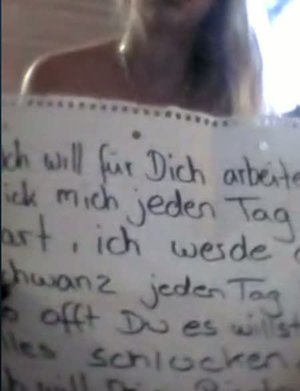 ch will für Dich arbeite
ick mich jeden Tag
art, ich werde
chwanz jeden Tag
o offt Du es willst
lles schlucken
will